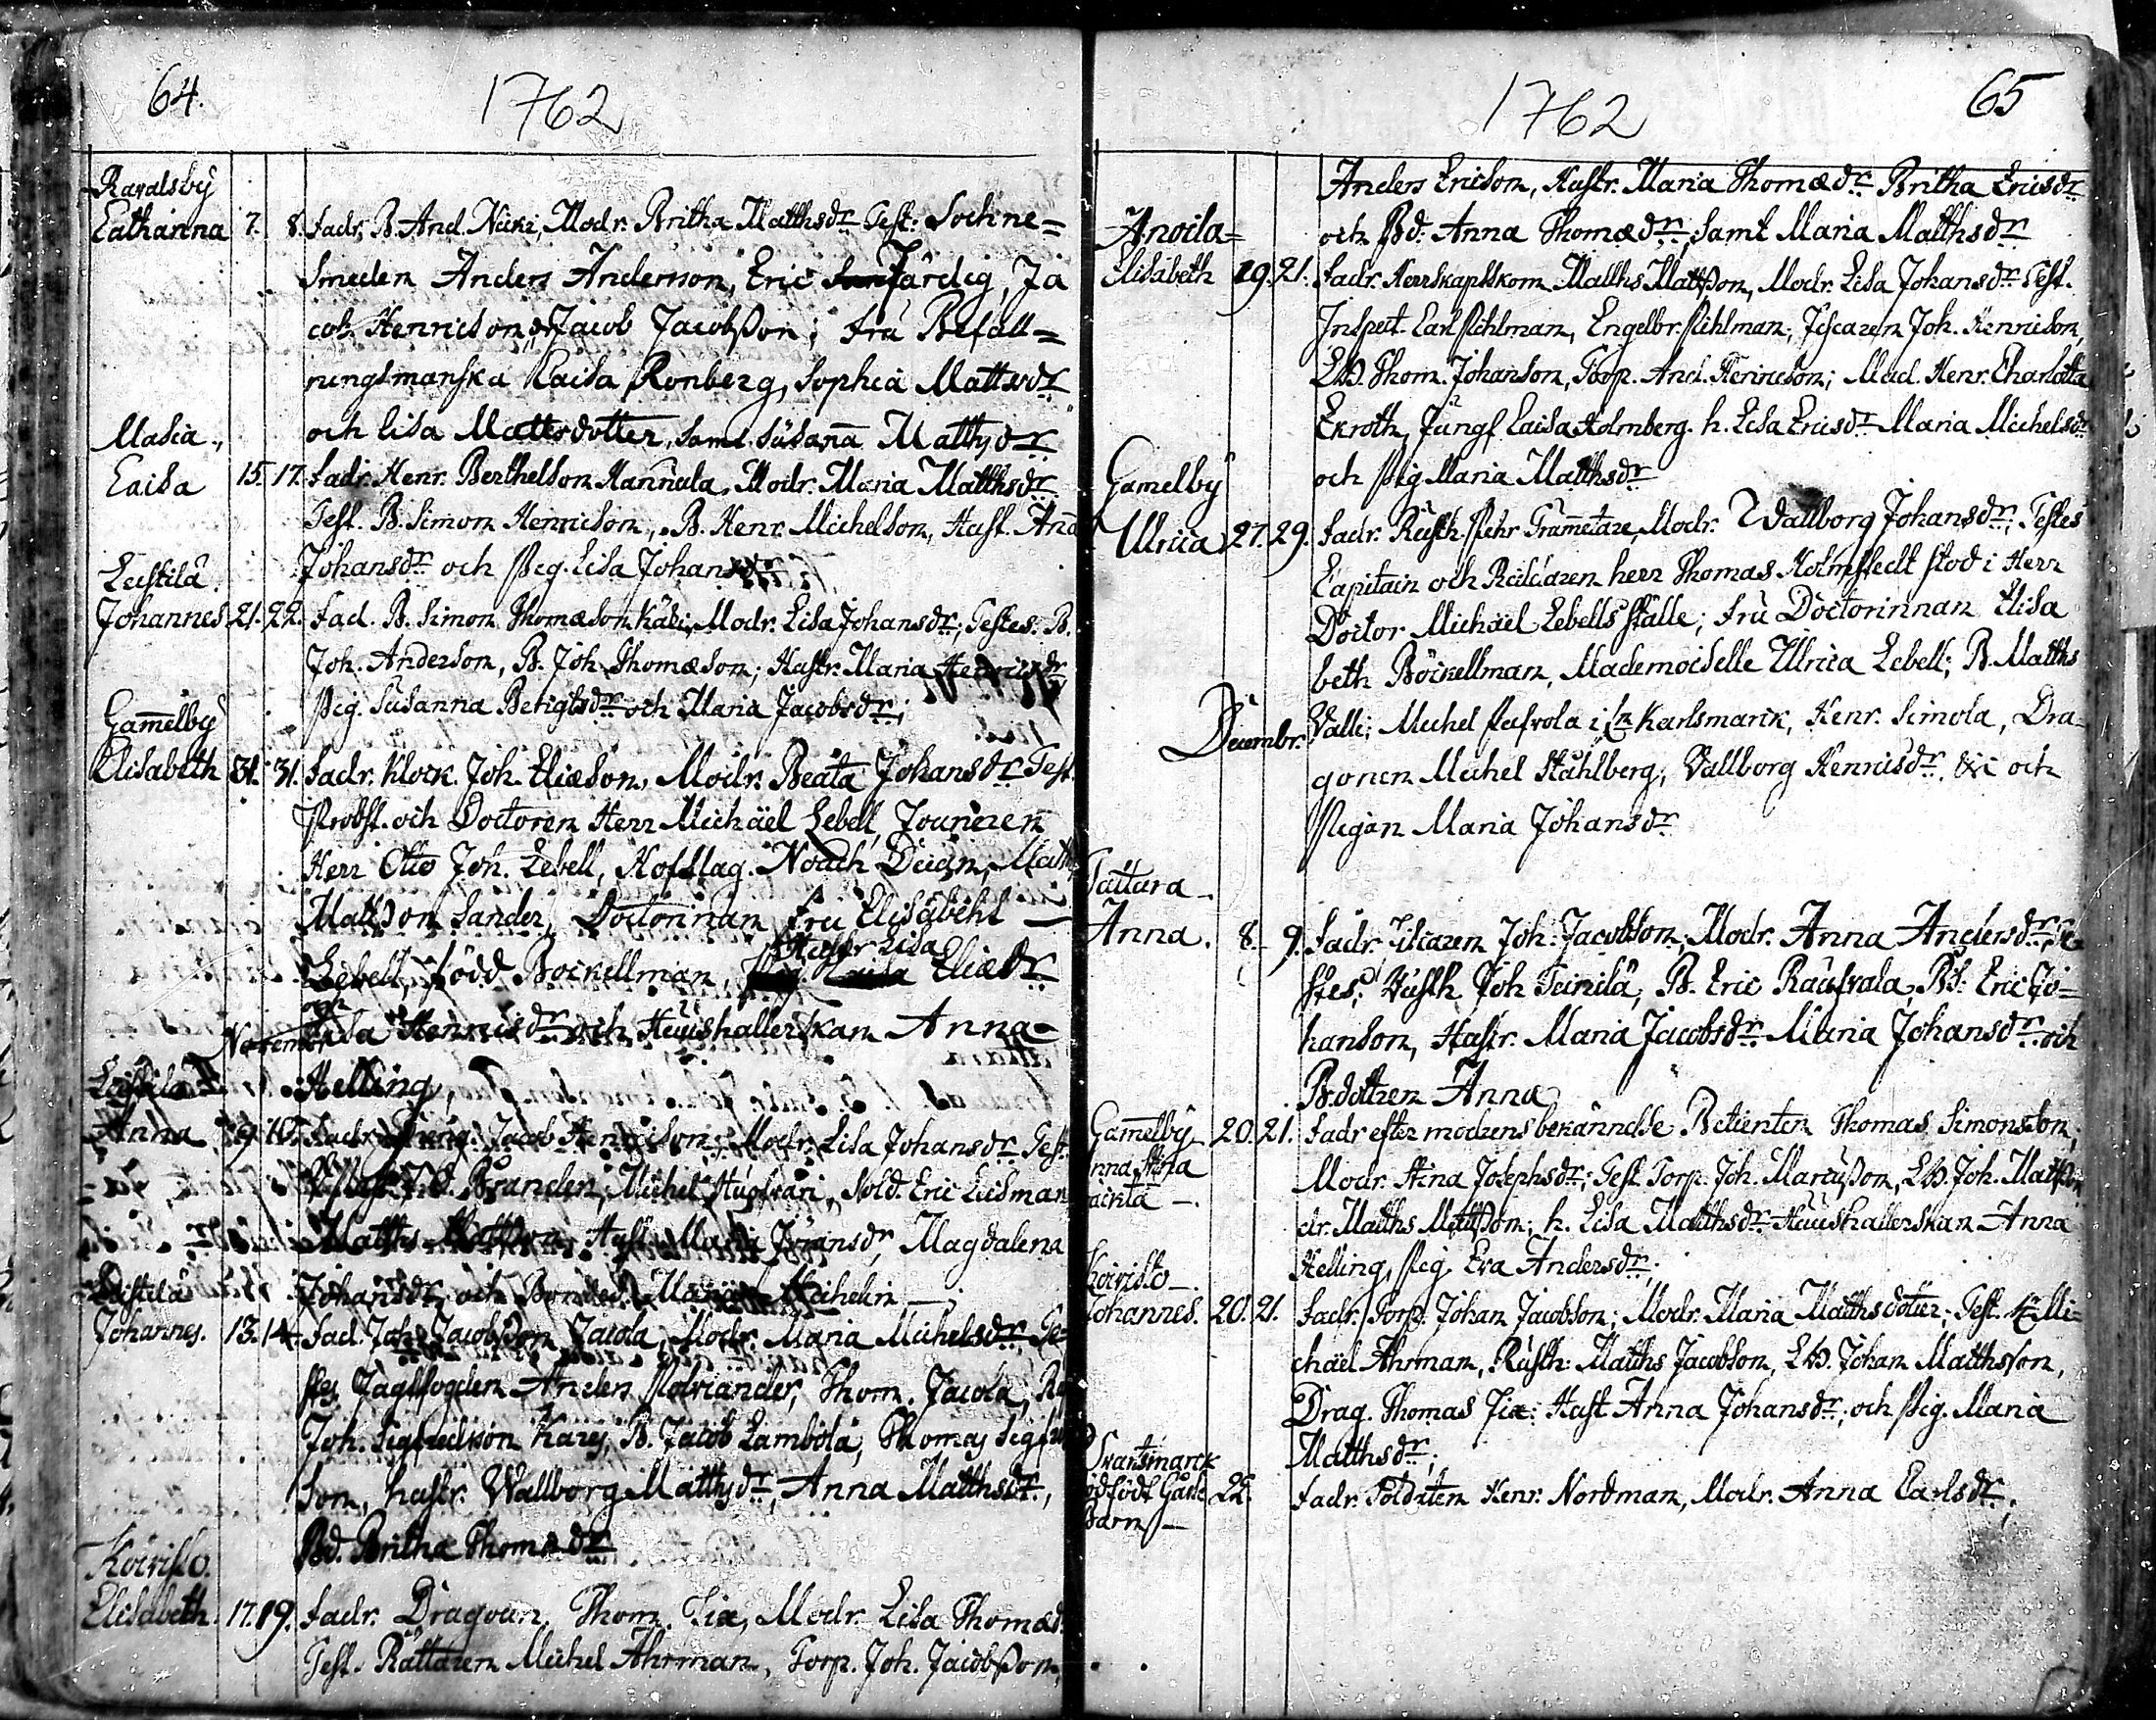 64.
1762
Ravalsby
Catharina 7. 8. Fadr. B. And. Nicki, Modr. Britha Matthsdr Test: Sochne=
smeden Anders Andersson, Eric Färdig, Ja
cob Henricson, Jacob Jacobsson; Fru Befall=
ningsmanska Caisa Ronberg, Sophia Mattsdr
och Lisa Mattsdotter, samt Susana Matthsdr
Masia.
Caisa 15. 17. Fadr. Henr. Berthelson Hannula, Modr. Maria Matthsdr
Test. B. Simon Henricson, B. Henr. Michelson, Hust. Ana
Johansdr och Pig. Lisa Johansdr
Leistilä
Johannes 21. 22. Fad. B. Simon Thomæson Käki, Modr. Lisa Johansdr; Testes: B.
Joh. Anderson, B. Joh. Thomæson; Hustr. Maria Henricsdr
Pig. Susanna Bengtsdr och Maria Jacobsdr;
Gamelby
Elisabeth 31. 31. Fadr. Klock. Joh. Eliæson, Modr. Beata Johansdr Test.
Probst. och Doctoren Herr Michäel Lebell, Junkeren
Herr Otto Joh. Lebell, Hofslag. Noach Decin, Matth
Mattson Sander, Doctorinnan Fru Elisabeht
Hustr Lisa
Lebell, född Böckellman Eliædr
och
Lisa Henricsdr och Hushållerskan Anna
November
Helling
Leistilä
Anna 9. 10. Fadr. Jacob Henricson, Modr. Lisa Johansdr Test.
Branden, Michel Hugfvari, Sold. Eric Lidman
Matths Mattson, Hust. Maria Jöransdr, Magdalena
Leistilä Johansdr och
Johannes. 13. 14. Fad. Joh. Jacobsson Jacola, Modr. Maria Michelsdr Te=
stes Jagtfogden Anders Polviander, Thom. Jacola,
Joh. Sigfredsson Karej, B. Jacob Lambola, Thomas Sigfred
son, hustr. Wallborg Matthsdr, Anna Matthsdr,
Bd. Britha Thomædr
Koivisto.
Elisabeth. 17. 19. Fadr. Dragoun. Thom. Fix, Modr. Lisa Thomædr
Test. Rättaren Michel Ahrman, Torp. Joh. Jacobsson,
1762
65
Anders Ericson, Hustr. Maria Thomædr Britha Ericsdr
Anoila= och Bd: Anna Thomædr, samt Maria Matthsdr
Elisabeth 19. 21. Fadr. Herrskapskom Matths Mattsson, Modr. Lisa Johansdr Test.
Inspect. Carl Pihlman, Engelbr. Pihlman, Fiscaren Joh. Henricson,
Thom. Johanson, Torp. And. Henricson; Mad. Henr. Charlotta
Ekroth, Jungf Caisa Holmberg. h. Lisa Ericsdr Maria Michelsdr
Gamelby och Pig Maria Matthsdr
Ulrica 27. 29. Fadr. Rusth. Pehr Trametare, Modr. Wallborg Johansdr; Testes
Capitain och Riddaren herr Thomas Holmstedt stod i Herr
Doctor Michäel Lebells ställe; Fru Doctorinnan Elisa
beth Böckellman, Mademoiselle Ulrica Lebell; B. Matths
Decembr. Valli; Michel Pafvola i Karlsmarck, Henr. Simola, Dra-
gonen Michel Ståhlberg, Vallborg Henricsdr. och
Pigan Maria Johansdr
Taitura
Anna. 8. 9. Fadr. Fiscaren Joh: Jacobson, Modr. Anna Andersdr; Te
stes; Rusth. Joh Teinilä, B. Eric Raufvala, Bd: Eric Jo=
hanson, Hustr. Maria Jacobsdr Maria Johansdr och
B. dottren Anna
Gamelby 20. 21. Fadr efter modrens bekännelse Betienten Thomas Simonsson,
Anna Stina
oäckta Modr. Stina Josephsdr; Test Torp. Joh. Marcusson, Joh. Mattson
dr. Matths Mattsson; h. Lisa Matthsdr Hushållerskan Anna
Helling, Pig. Eva Andersdr;
Koivisto
Johannes. 20. 21. Fadr. Torp. Johan Jacobson; Modr. Maria Matthsdotter; Test. Mi=
chäel Ahrman, Rusth: Matths Jacobson, Johan Matthsson,
Drag. Thomas Fix: Hust Anna Johansdr; och Pig. Maria
Svartsmarck Matthsdr;
dödfödt Gåsse 22. Fadr. Soldaten Henr. Nordman, Modr. Anna Carlsdr;
Barn